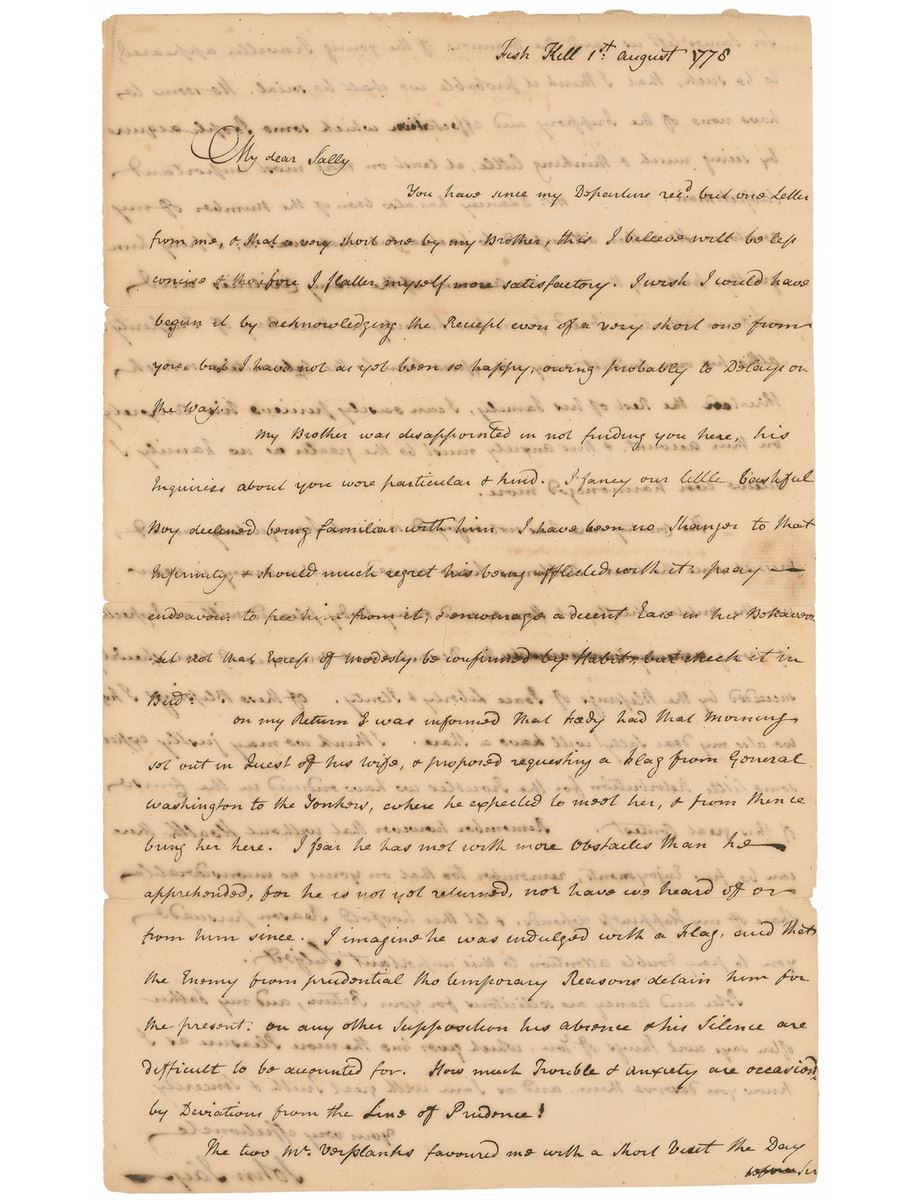 Fish Kill 1st. August 1778
My dear Sally
You have since my Departure recd. but one Letter
from me, & that a very short one by my Brother, this I believe will be less
concise & therefore I flatter myself more satisfactory. I wish I could have
begun it by acknowledging the Receipt even of a very short one from
you, but I have not as yet been so happy, owing probably to Delays on
the Way.
My Brother was disappointed in not finding you here, his
Inquiries about you were particular & kind. I fancy our little bashful
Boy declined being familiar with him I have been no Stranger to that
Infirmity, & should much regret his being afflicted with it. pray —
endeavour to free him from it, & encourage a decent Ease in his Behaviour
let not that Excess of Modesty be confirmed by Habit, but check it in
Bud.
on my Return I was informed that had that Morning
set out in Quest of his Wife, & proposed requesting a Flag from General
Washington to the Yonkers, where he expected to meet her, & from thence
bring her here. I fear he has met with more Obstacles than he
apprehended, for he is not yet returned, nor have we heard of or
from him since. I imagine he was indulged with a Flag, and that
the Enemy from prudential tho temporary Reasons detain him for
the present: on any other Supposition his absence & his Silence are
difficult to be accounted for. How much Trouble & Anxiety are occasiond.
by Deviations from the Line of Prudence!
The two Mr. Verplanks favoured me with a Short Visit the Day